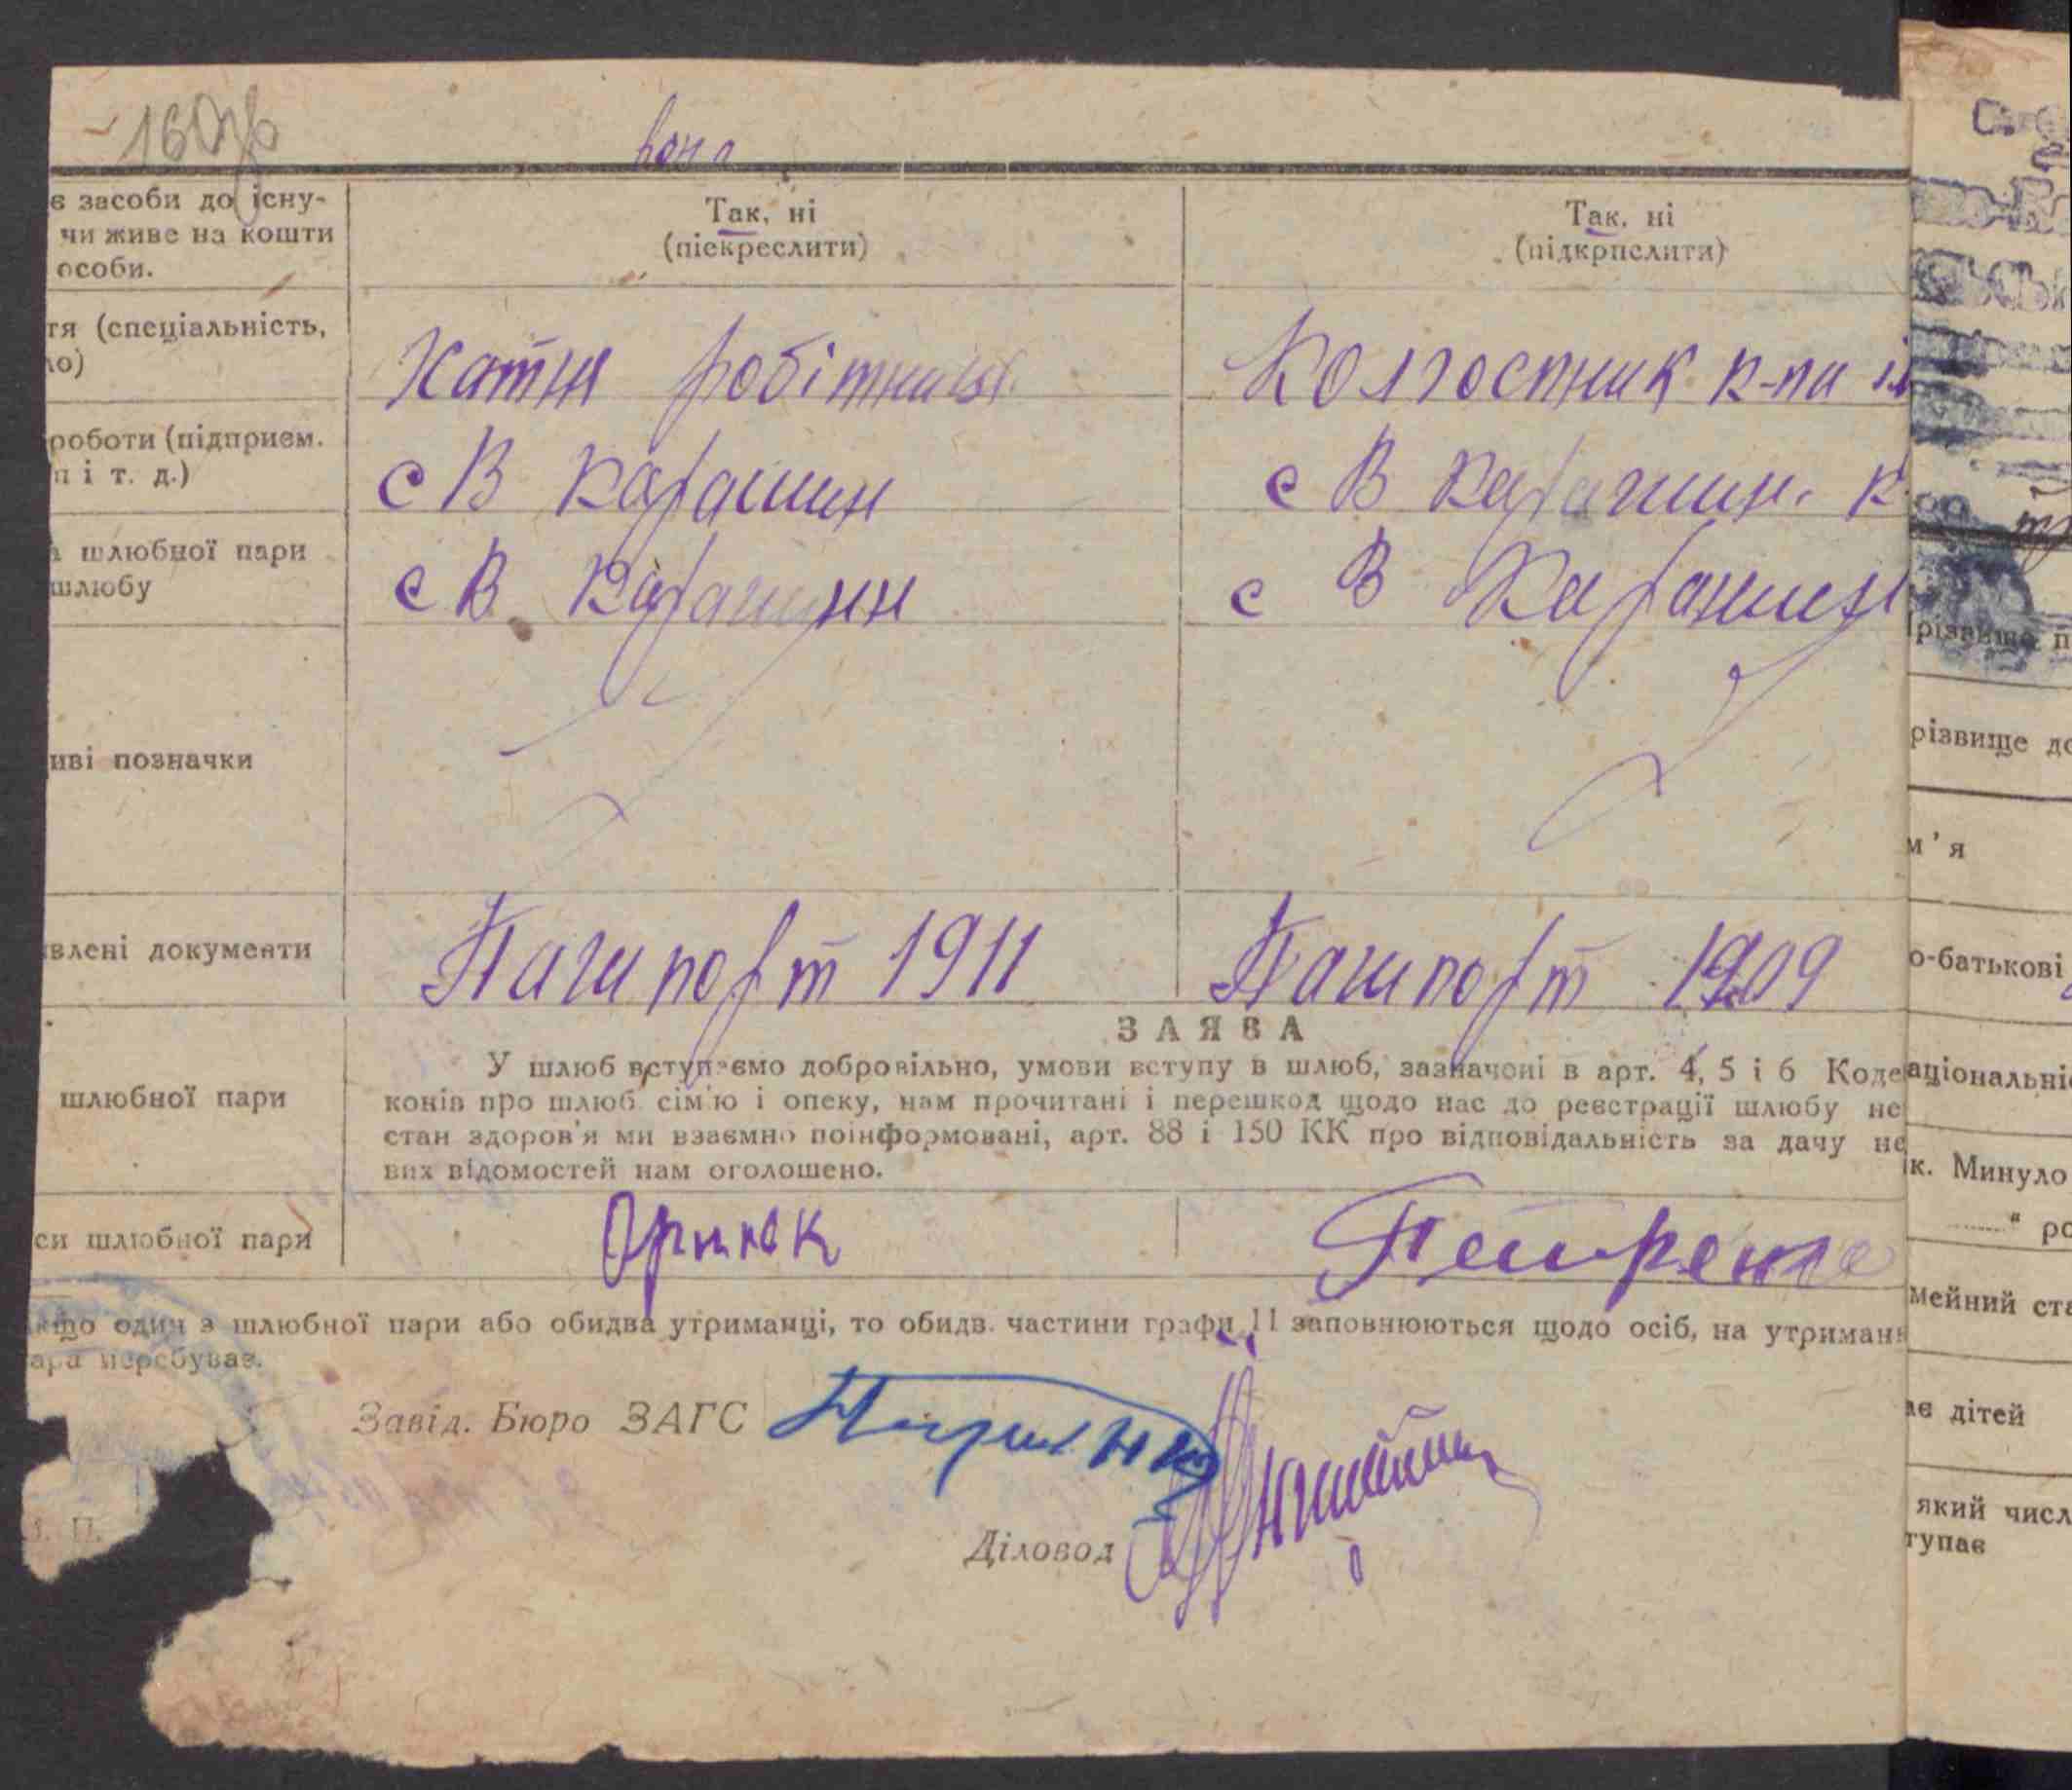 вона
є засоби до існу-
чи живе на кошти
особи.
Так, ні
(піекреслити)
Так, ні
(підкрпслити)
тя (спеціальність,
ло)
Хатня робітниця
Колгоспник к-пи ім
роботи (підприєм.
п і т. д.)
с В Карашин
с В Карашин. К
а шлюбної пари
шлюбу
с В Карашин
с В Карашин
иві позначки
явлені документи
Пашпорт 1911
Пашпорт 1909
шлюбної пари
ЗАЯВА
У шлюб вступаємо добровільно, умови вступу в шлюб, зазначені в арт. 4, 5 і 6 Коде
конів про шлюб сім'ю і опеку, нам прочитані і перешкод щодо нас до реєстрації шлюбу не
стан здоров'я ми взаємно поінформовані, арт. 88 і 150 КК про відповідальність за дачу не
вих відомостей нам оголошено.
си шлюбної пари
Оринюк
Петренко
якщо один з шлюбної пари або обидва утриманці, то обидв. частини графи 11 заповнюються щодо осіб, на утриман
пара перебуває.
Завід. Бюро ЗАГС
Діловод
М. П.
різвище п
різвище до
м'я
о-батькові
аціональні
ік. Минуло
" ро
мейний ста
ає дітей
який числ
тупає